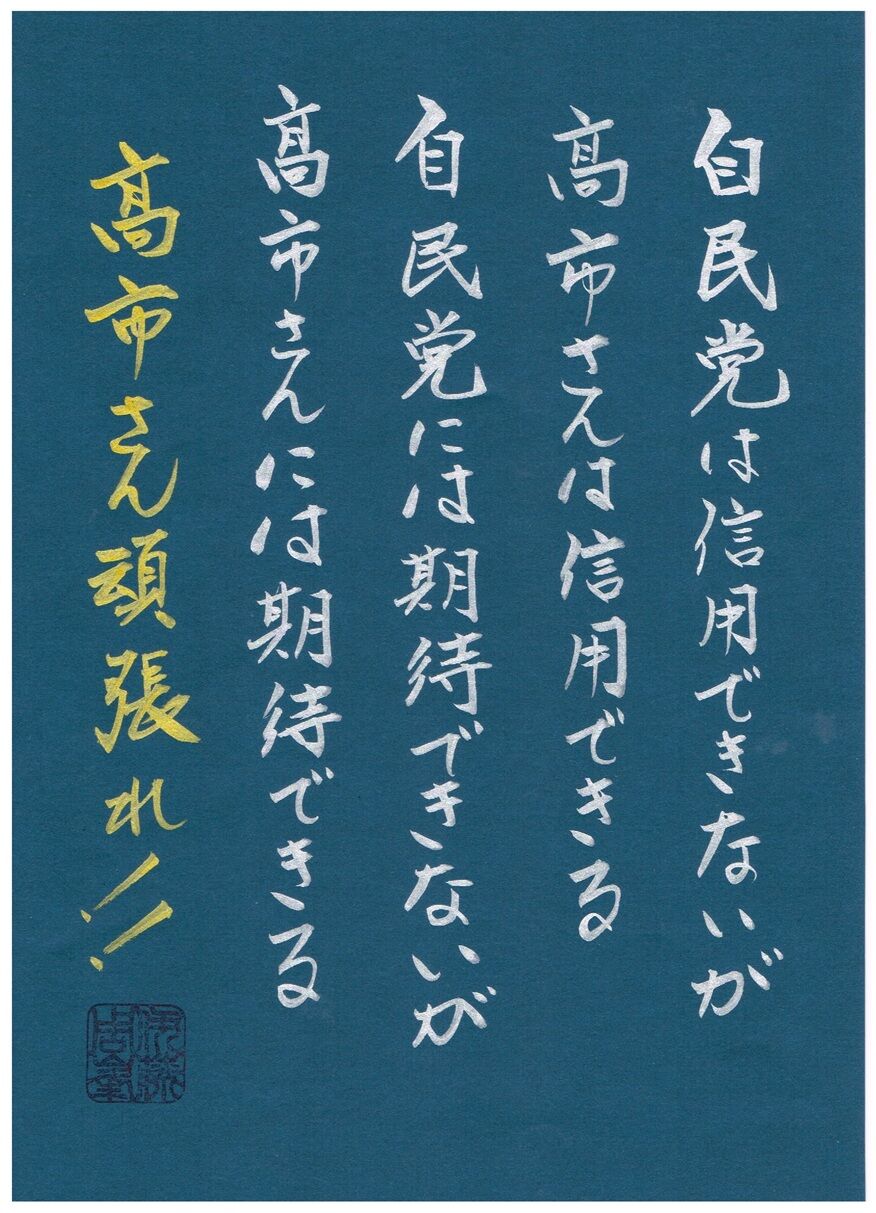 自民党は信用できないが
髙市さんは信用できる
自民党には期待できないが
髙市さんには期待できる
髙市さん頑張れ!!